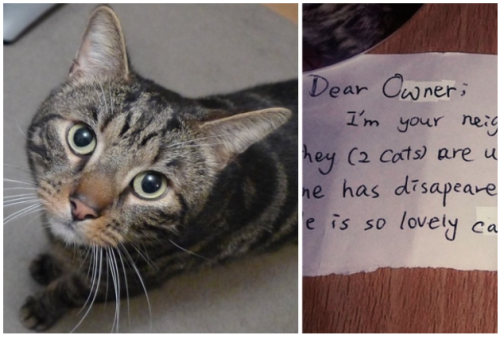 Dear Owner;
I'm your neig
hey (2 cats) are u
ne has disapeare
e is so lovely ca